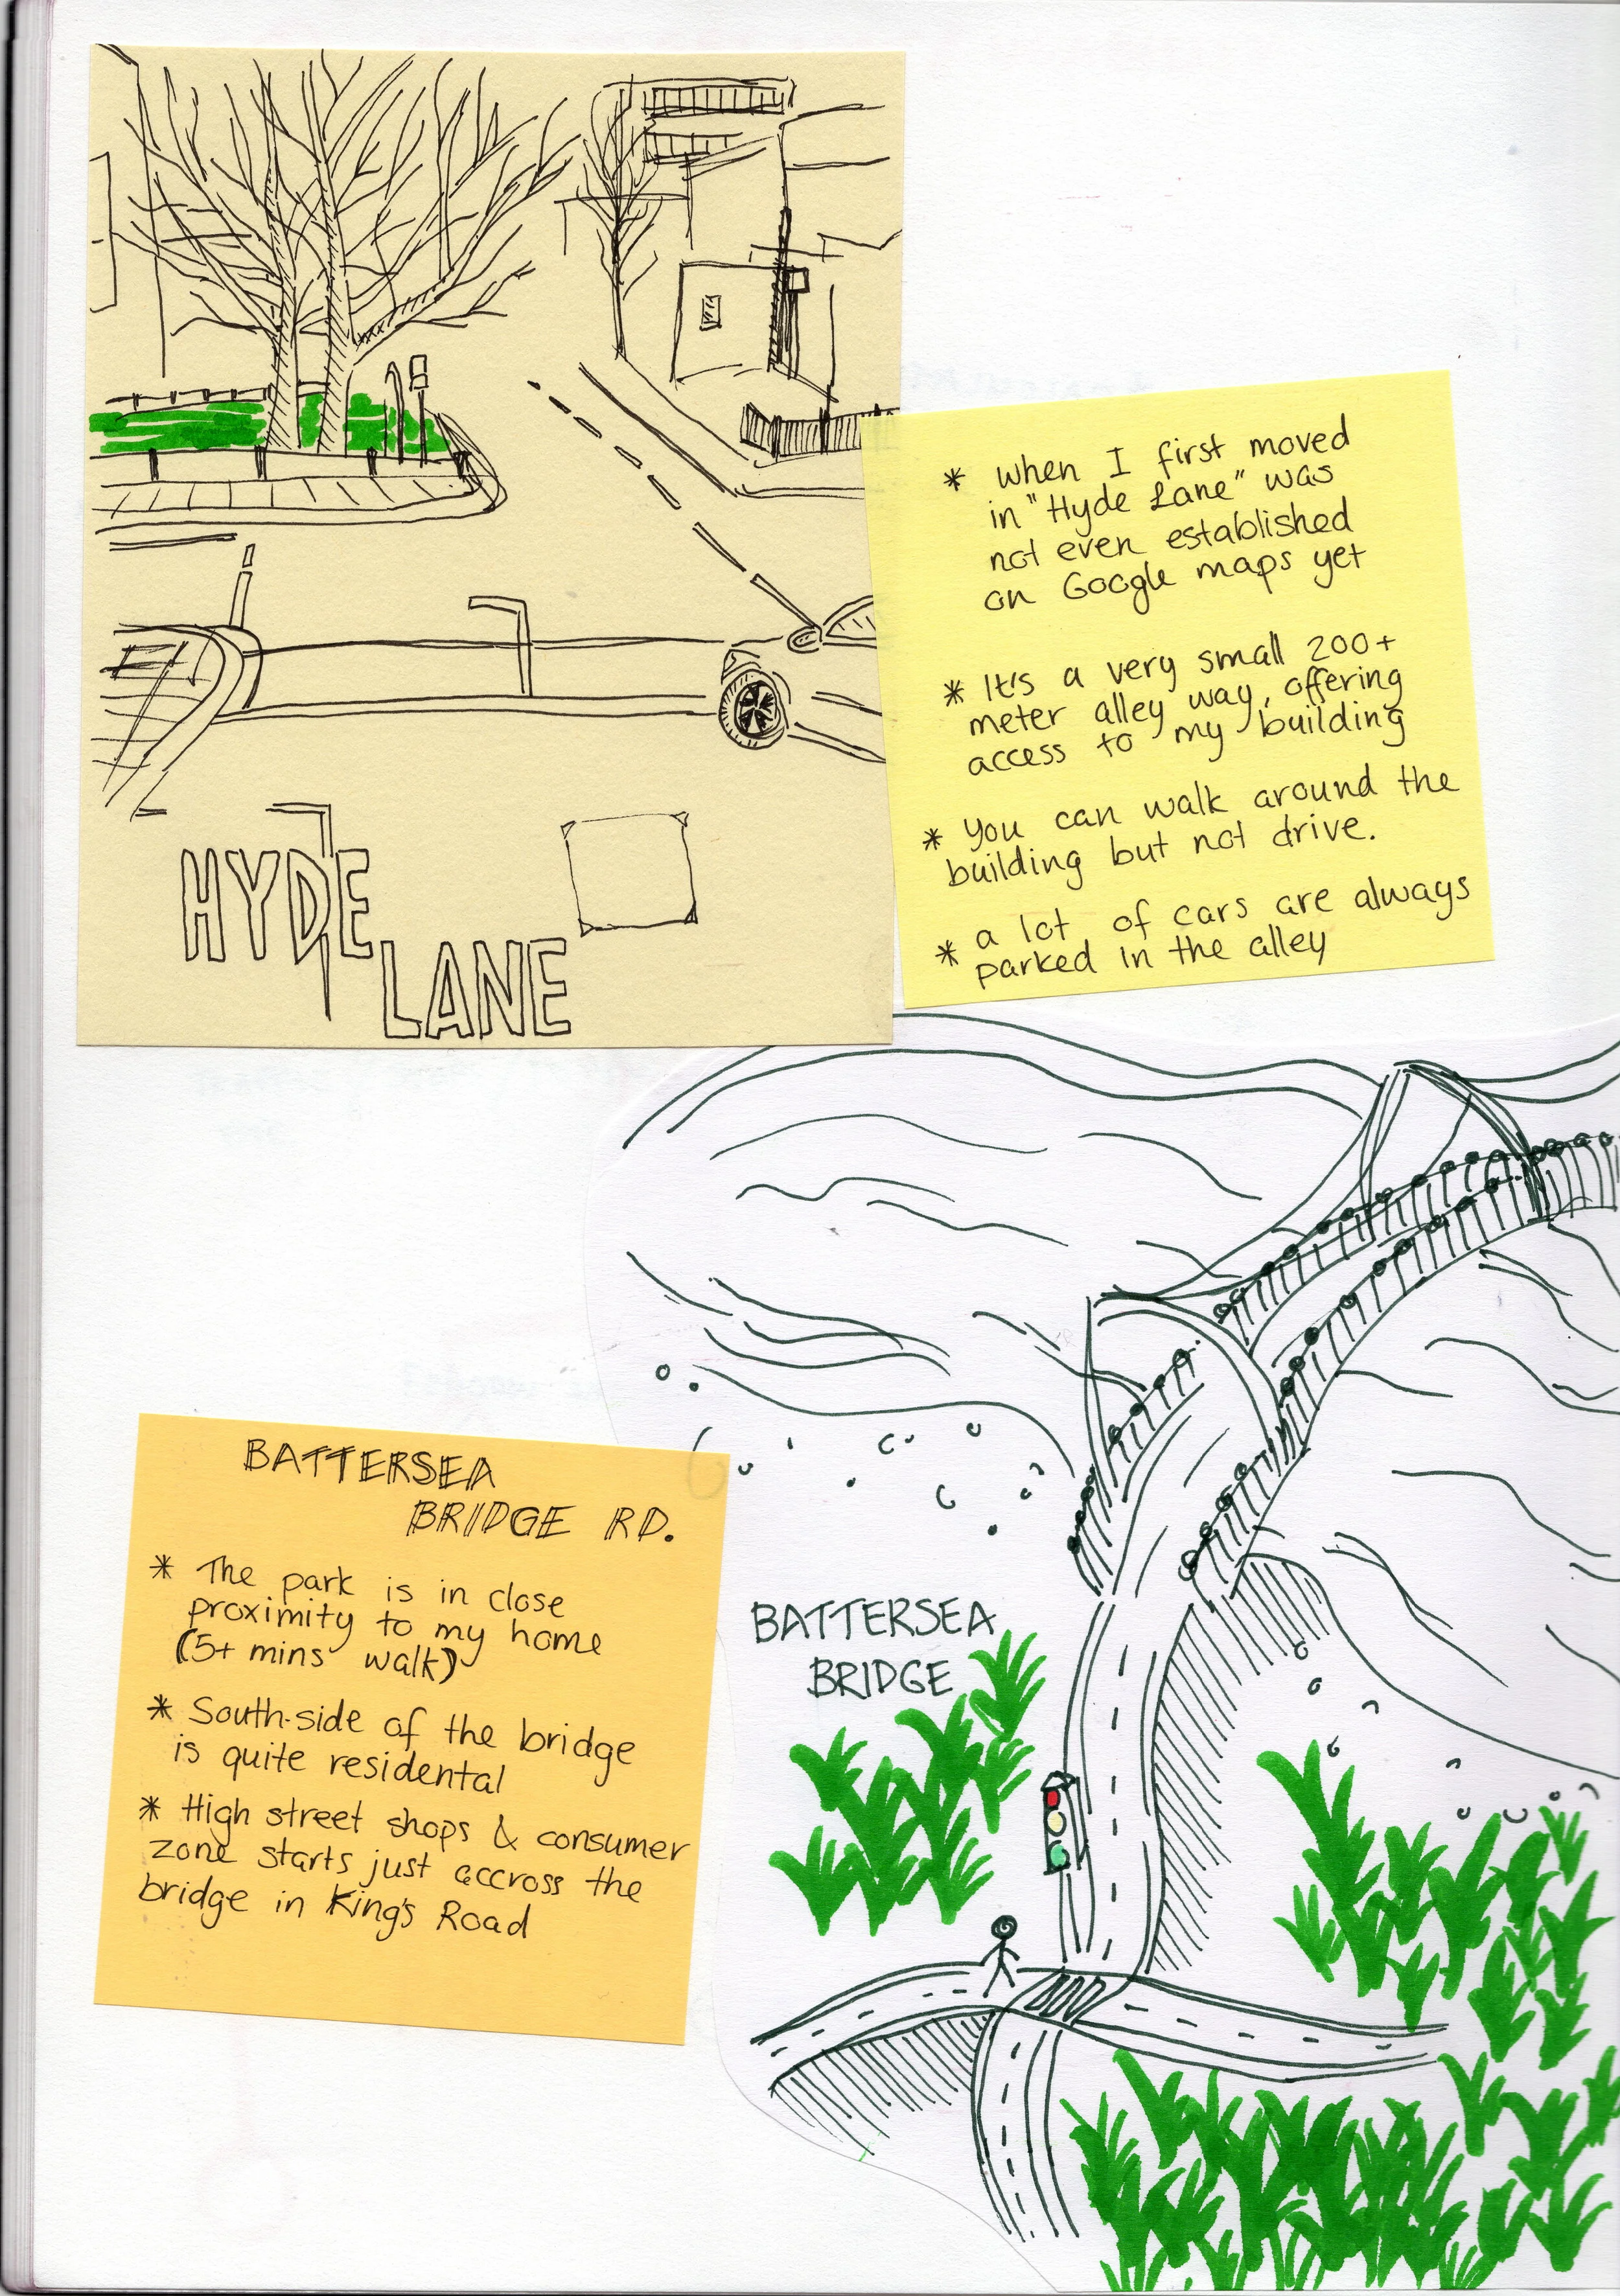 HYDE
LANE
* when I first moved
in "Hyde Lane" was
not even established
on Google maps yet
* It's a very small 200+
meter alley way, offering
access to my building
* You can walk around the
building but not drive.
* a lot of cars are always
parked in the alley
BATTERSEA
BRIDGE RD.
* The park is in close
proximity to my home
(5+ mins walk)
* South-side of the bridge
is quite residental
* High street shops & consumer
zone starts just accross the
bridge in King's Road
BATTERSEA
BRIDGE